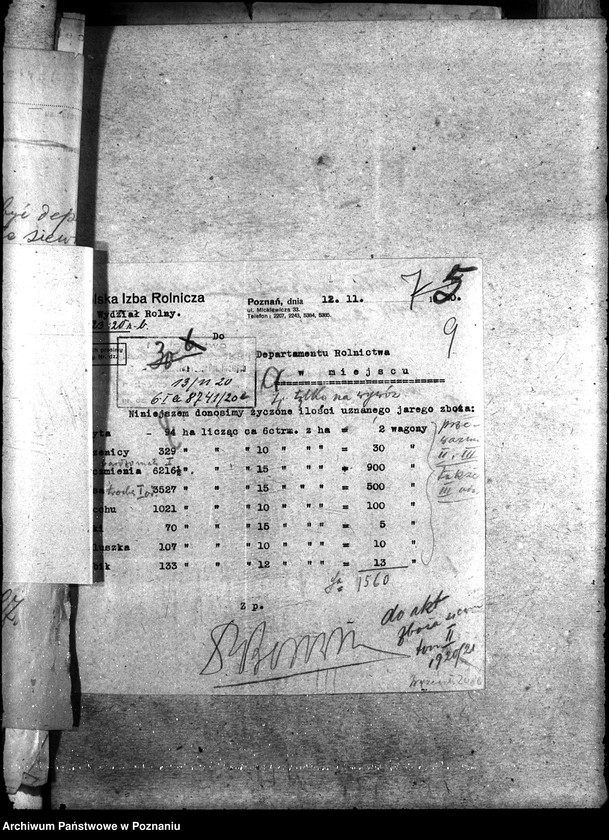 być dep
siew
lska Izba Rolnicza
Wydział Rolny.
Poznań, dnia 12. 11. 1920.
ul. Mickiewicza 33.
Telefon: 2207, 2243, 5364, 5365.
75
9
Do
30
13/11 20
6 I a 8241/20
Departamentu Rolnictwa
w miejscu
tylko na wywóz
Niniejszem donosimy życzone ilości uznanego jarego zboża:
yta - 94 ha licząc ca 6ctrm. z ha = 2 wagony
zenicy 329 " " 10 " " " = 30 "
czmienia 6216½ " " 15 " " " = 900 "
a trochę I od 3527 " " 15 " " " = 500 "
ochu 1021 " " 10 " " " = 100 "
ki 70 " " 15 " " " = 5 "
luszka 107 " " 10 " " " = 10 "
bik 133 " " 12 " " " = 13 "
1560
prze-
ważnie
II i III
także
III
Z p.
do akt
zboża
tom II
1920/21
Archiwum Państwowe w Poznaniu